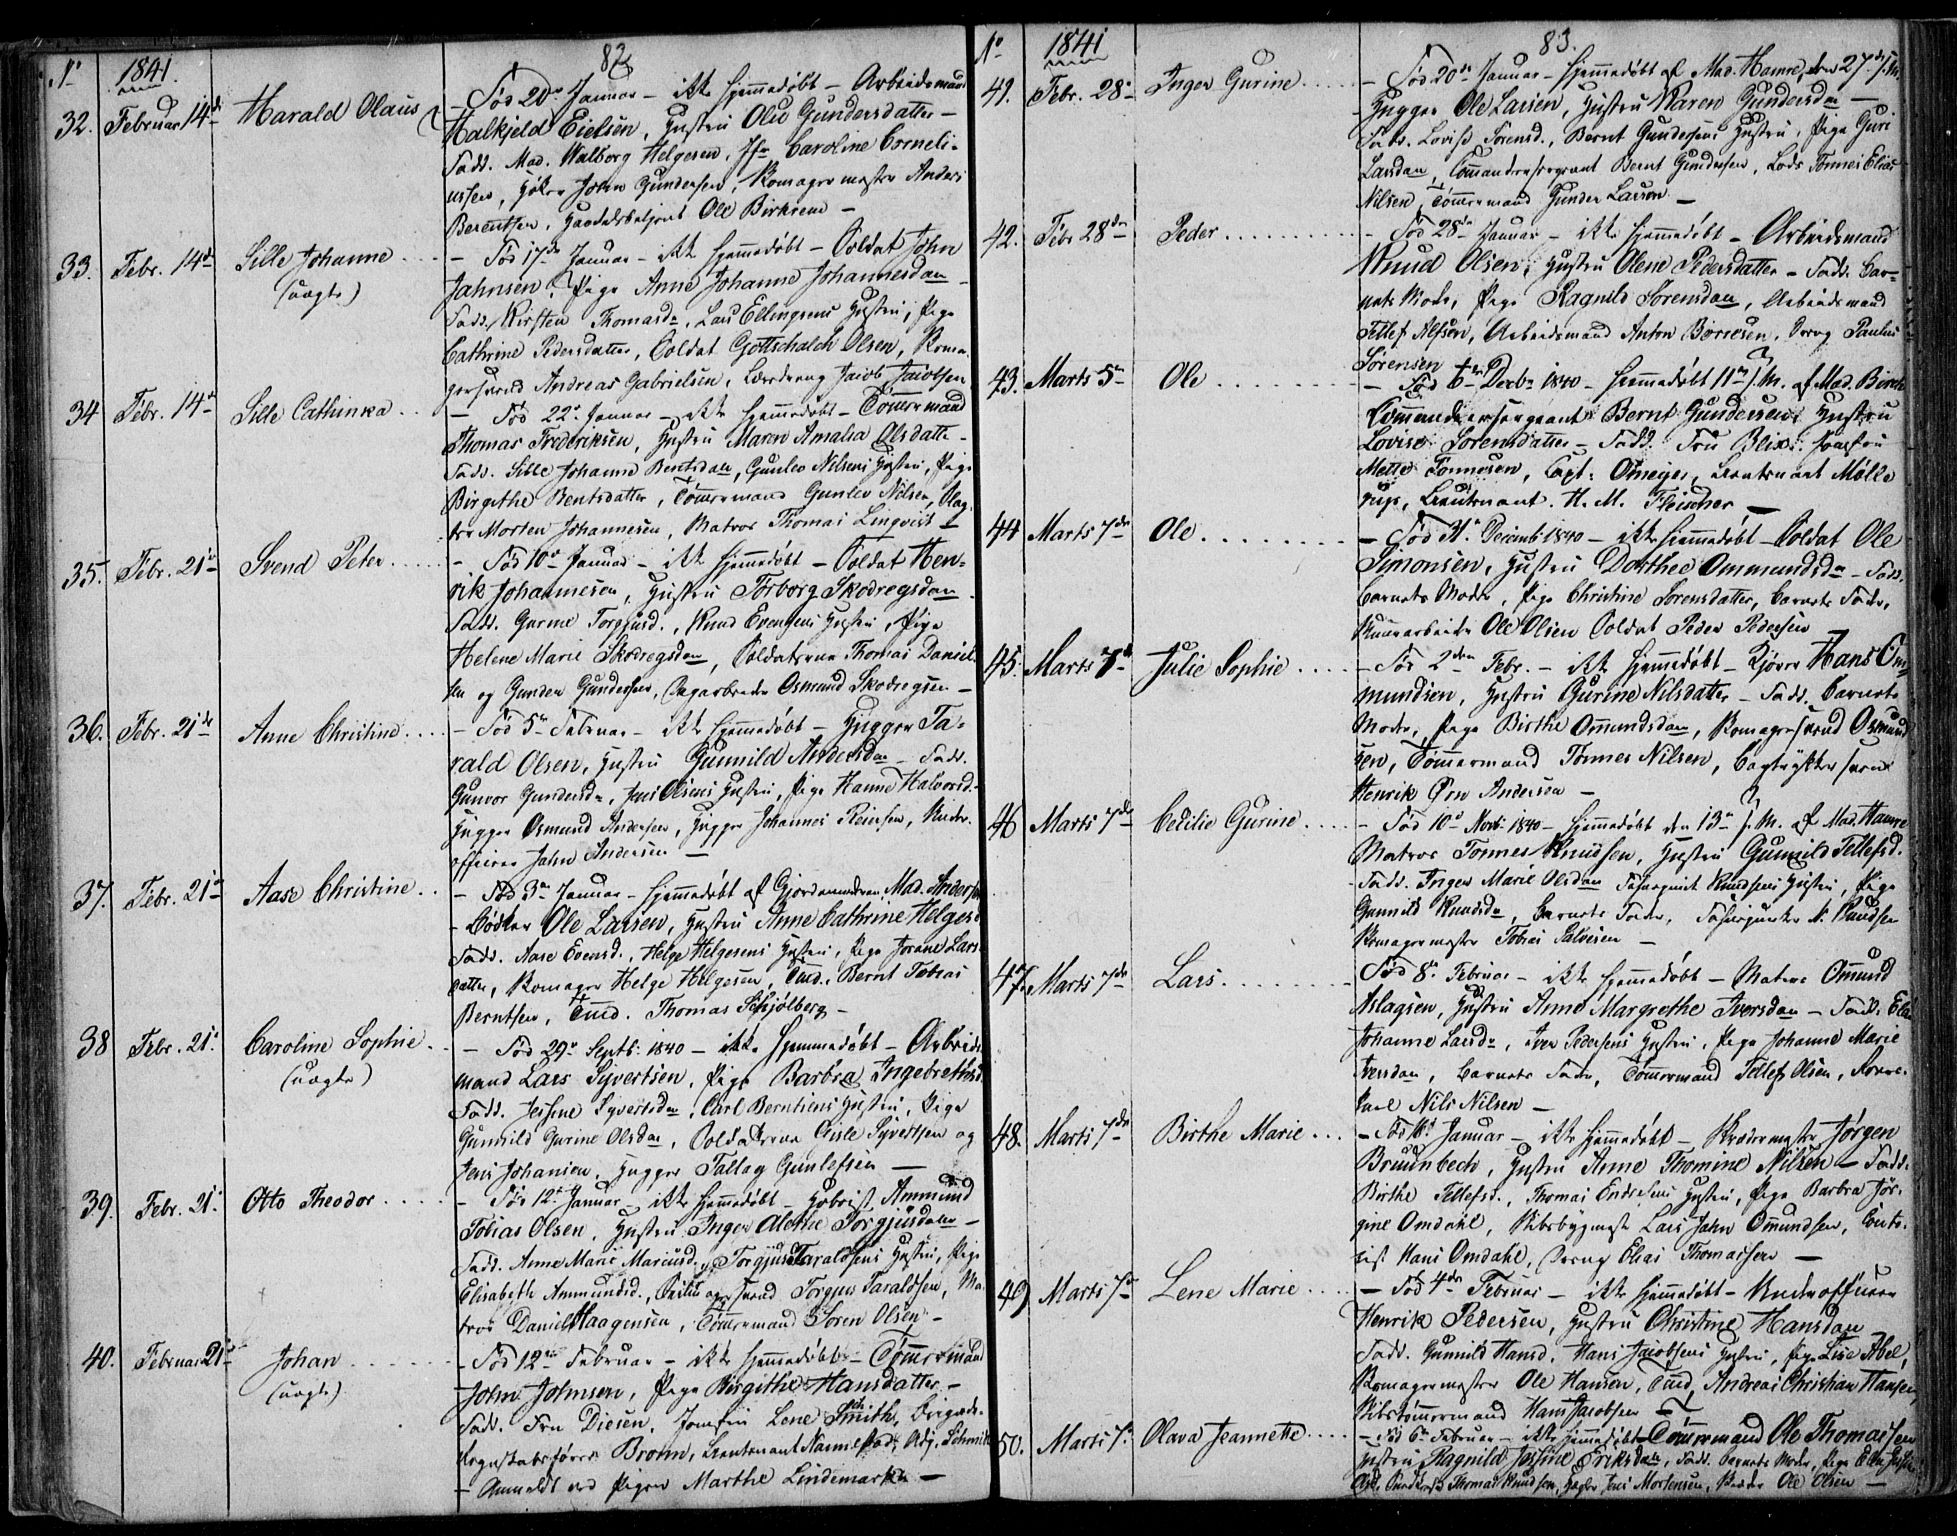 82
No 1841.
32. Februar 14de Harald Olaus
- Fød 20de Januar - ikke hjemmedøbt - Arbeidsmand
Halkjeld Eielsen, Hustru Olu Gundersdatter -
Fadd. Mad. Walborg Helgesen, Jfr Caroline Corneli-
ussen, John Gundersen, Skomagermester Anders
Berentsen, Ole Birkrem -
33. Febr. 14de Sille Johanne (uægte)
- Fød 17de Januar - ikke hjemmedøbt - Soldat John
Jahnsen, Pige Anne Johanne Johannesdatter
Fadd. Kirsten Thomasdr, Lars Ellingsens Hustru, Pige
Cathrine Pedersdatter, Soldat Gottschalch Olsen, Skoma-
gersvend Andreas Gabrielsen, Læredreng Jacob Jacobsen
34 Febr. 14de Sille Cathinka
- Fød 22de Januar - ikke hjemmedøbt - Tømmermand
Thomas Frederiksen, Hustru Maren Amalia Olsdatter -
Fadd. Sille Johanne Bentsdatter, Gunlev Nilsens Hustru, Pige
Birgithe Bentsdatter, Tømmermand Gunlev Nilsen, Slag-
ter Morten Johannesen, Matros Thomas Linqvist -
35. Febr. 21de Svend Peter
- Fød 10de Januar - ikke hjemmedøbt - Soldat Hen-
rik Johannesen, Hustru Torborg Skodregsdatter
Fadd. Gurine Torgjusd., Knud Evensens Hustru, Pige
Helene Marie Skodregsdatter, Soldaterne Thomas Daniel-
sen og Gunder Gundersen, Osmund Skodregsen -
36. Febr. 21de Anne Christine
- Fød 5te Februar - ikke hjemmedøbt - Hugger Ta-
rald Olsen, Hustru Gunnild Andersdatter - Fadd.
Gunvor Gundersdr, Jens Olsens Hustru, Pige Hanne Halvorsd.
Hugger Osmund Andersen, Hugger Johannes Reiersen, Under-
officeer Jahn Andersen -
37. Febr. 21de Aase Christine
- Fød 3de Januar - hjemmedøbt af Gjordemoderen Mad. Andersen
- Bødker Ole Larsen, Hustru Anne Cathrine Helgesd
Fadd. Aase Evensd., Helge Helgesens Hustru, Pige Jorane Lars-
datter, Skomager Helge Helgesen, Tmd. Bernt Tobias
Berntsen, Tmd. Thomas Schjølberg -
38 Febr. 21de Caroline Sophie (uægte)
- Fød 29de Septb: 1840 - ikke hjemmedøbt - Arbeids-
mand Lars Syvertsen, Pige Barbra Ingebretsd.
Fadd. Jessine Syvertsdr, Carl Berntsens Hustru, Pige
Gunnild Gurine Olsdatter, Soldaterne Gisle Syvertsen og
Jens Johansen, Hugger Tallag Gunlefsen -
39. Febr. 21de Otto Theodor
- Fød 12de Januar - ikke hjemmedøbt - Hoboist Ammund
Tobias Olsen, Hustru Inger Alethe Torgjusdatter -
Fadd. Anne Marie Marcusd., Torgjus Taraldsens Hustru, Pige
Elisabeth Ammundsd., Torgjus Taraldsen, Ma-
tros Daniel Haagensen, Tømmermand Søren Olsen -
40. Februar 21de Johan (uægte)
- Fød 12te Februar - ikke hjemmedøbt - Tømmermand
John Johnsen, Pige Birgithe Hansdatter -
Fadd. Fru Diesen, Jomfru Lene Smith, Brigade-
Regnskabsfører Bronn, Lieutenant Nannestad, Adj. Schmidt
- Anmeldt ved Pigen Marthe Lindemarken -
83.
No 1841
41. Febr. 28de Inger Gurine
- Fød 20de Januar - hjemmedøbt af Mad. Hamre, den 27de s. M.
Hugger Ole Larsen, Hustru Karen Gundersdr -
Fadd. Lovise Sørensd., Bernt Gundersens Hustru, Pige Guri
Larsdatter, Commandeersergeant Bernt Gundersen, Lods Tønnes Elias
Nilsen, Tømmermand Gunder Larsen -
42. Febr 28de Peder
- Fød 28de Januar - ikke hjemmedøbt - Arbeidsmand
Knud Olsen, Hustru Olene Pedersdatter - Fadd. Bar-
nets Moder, Pige Ragnild Sørensdatter, Arbeidsmand
Tellef Alfsen, Arbeidsmand Anton Børresen, Dreng Paulus
Sørensen
43. Marts 5te Ole
- Fød 6te Decbr 1840 - hjemmedøbt 11te s. M. af Mad. Birch
Commandeersergeant Bernt Gundersen, Hustru
Lovise Sørensdatter - Fadd. Fru Blix, Jomfru
Mette Tønnesen, Capt: Omeyer, Lieutenant Mølle-
rup, Lieutenant H. M. Fleischer -
44 Marts 7de Ole
- Fød 31te Decemb. 1840 - ikke hjemmedøbt - Soldat Ole
Simonsen, Hustru Dorthee Ommundsdr - Fadd.
Barnets Moder, Pige Christine Sørensdatter, Barnets Fader,
Ole Olsen, Soldat Peder Pedersen -
45. Marts 7de Julie Sophie
- Fød 2den Febr. - ikke hjemmedøbt - Hans Om-
mundsen, Hustru Gurine Nilsdatter - Fadd. Barnets
Moder, Pige Birthe Ommundsdatter, Skomagersvend Osmund-
sen, Tømmermand Tønnes Nilsen, Bogtrykkersvend
Henrik Ørn Andersen -
46 Marts 7de Cecilie Gurine
- Fød 10de Novb: 1840 - hjemmedøbt den 13de s. M. af Mad. Hamre
Matros Tønnes Knudsen, Hustru Gunnild Tellefsd.
- Fadd. Inger Marie Olsdatter Knudsens Hustru, Pige
Gunnild Knudsdr, Barnets Fader, N. Knudsen
Skomagermester Tobias Salvesen -
47. Marts 7de Lars
Fød 8de Februar - ikke hjemmedøbt - Matros Omund
Aslagsen, Hustru Anne Margrethe Iversdatter - Fadd. Elen
Johanne Larsdr, Iver Pedersens Hustru, Pige Johanne Marie
Iversdatter, Barnets Fader, Tømmermand Tellef Olsen,
Nils Nilsen -
48. Marts 7de Birthe Marie
- Fød 16de Januar - ikke hjemmedøbt - Skræddermester Jørgen
Bruunbech, Hustru Anne Thomine Nilsen - Fadd.
Birthe Tellefsd., Thomas Endresens Hustru, Pige Barbra Jør-
gine Omdahl, Skibsbygmest. Lars Jahn Omundsen, Conto-
rist Hans Omdahl, Dreng Elias Thomassen -
49 Marts 7de Lene Marie
- Fød 4de Februar - ikke hjemmedøbt - Underofficeer
Henrik Pedersen, Hustru Christine Hansdatter
Fadd. Gunnild Hansd., Hans Jacobsens Hustru, Pige Lise Abel,
Skomagermester Ole Hansen, Tmd. Andreas Christian Hansen,
Skibstømmermand Hans Jacobsen -
50. Marts 7de Olava Jeannette
- Fød 6te Februar - ikke hjemmedøbt - Tømmermand Ole Thomassen
Hustru Ragnild Jessine Eriksdatter, Fadd. Barnets Moder, Pige
Thomas Knudsen, Jens Mortensen, Ole Olsen -